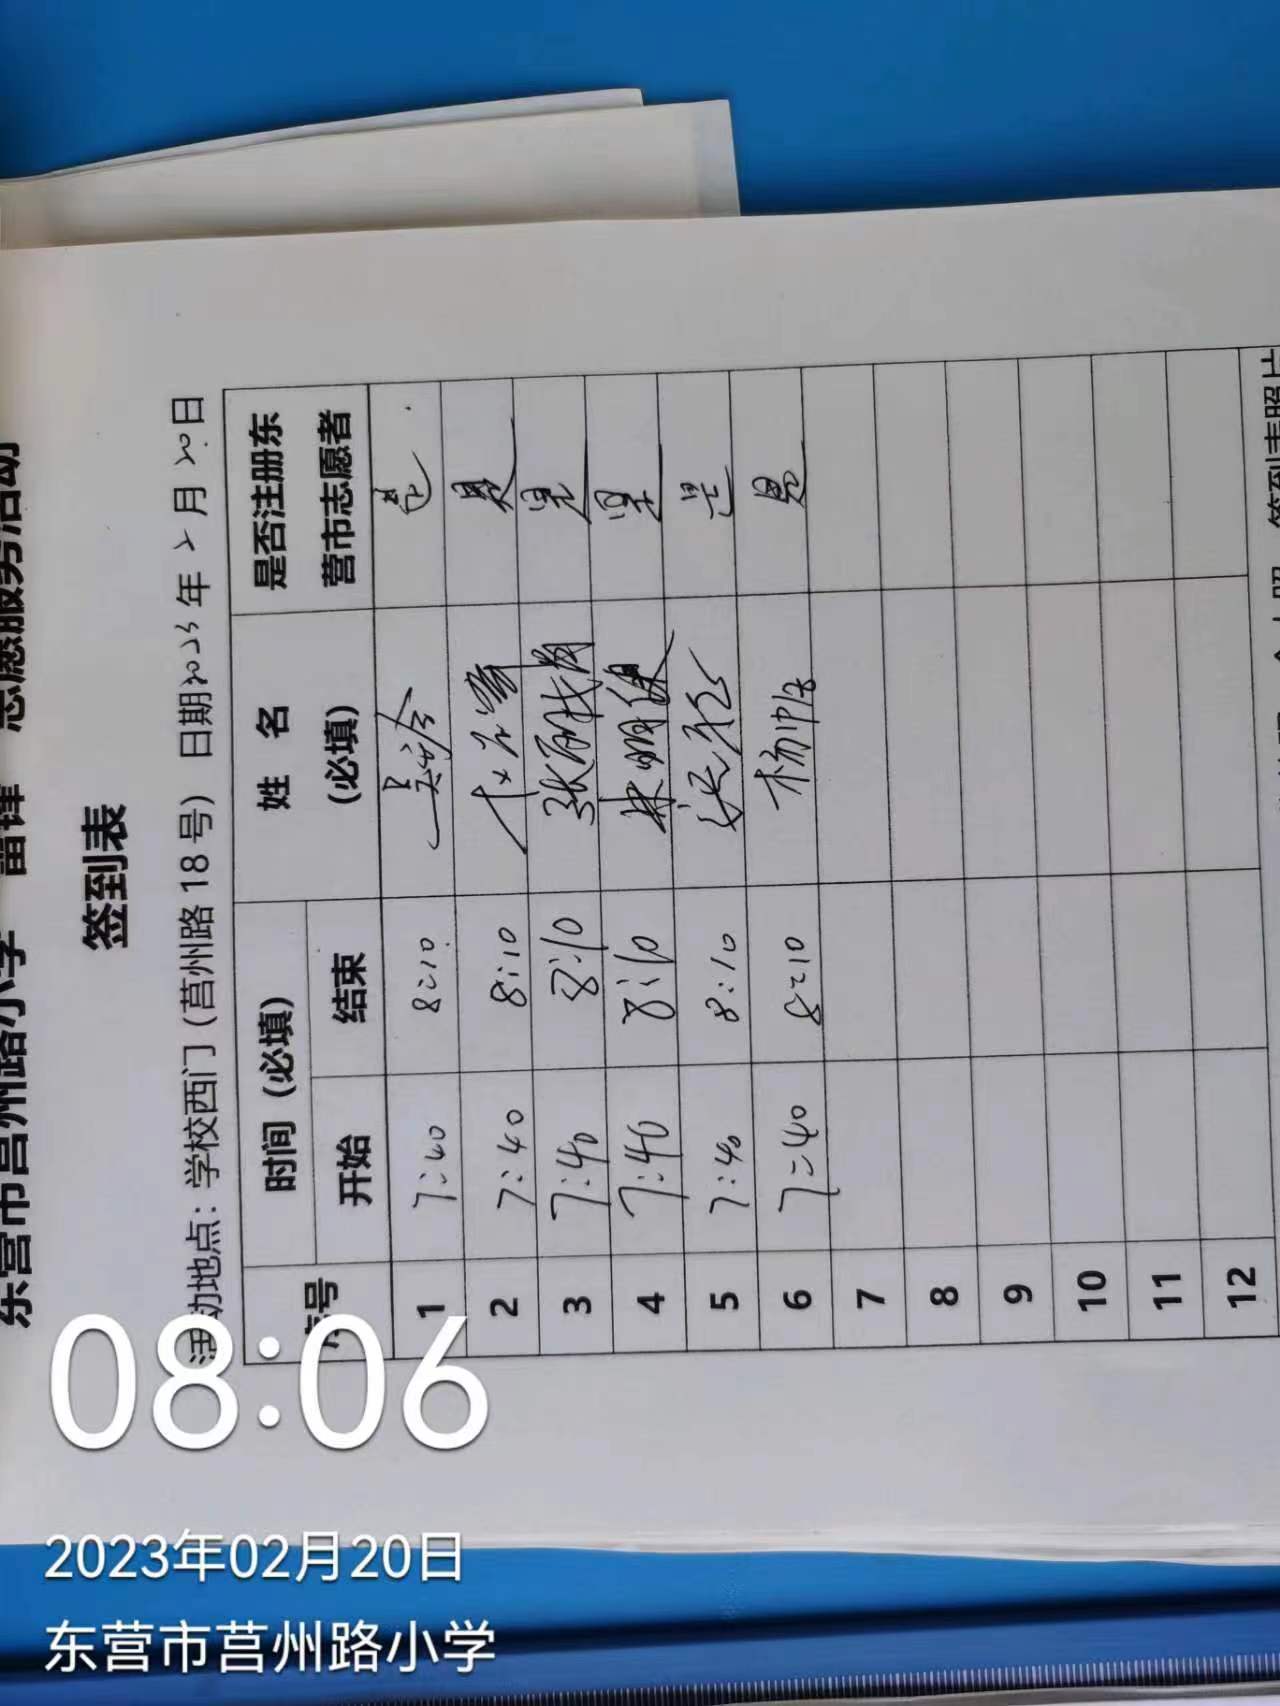 东营市莒州路小学 雷锋 志愿服务活动
签到表
活动地点：学校西门（莒州路18号） 日期2023年2月20日
序号 时间（必填） 姓 名（必填） 是否注册东营市志愿者
开始 结束
1 7:40 8:10 是
2 7:40 8:10 是
3 7:40 8:10 是
4 7:40 8:10 是
5 7:40 8:10 是
6 7:40 8:10 杨帅 是
7
8
9
10
11
12
签到表照片
08:06
2023年02月20日
东营市莒州路小学